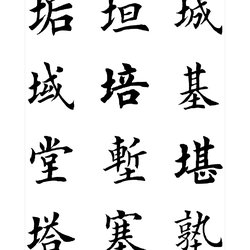 垢垣城
域培基
堂塹堪
塔塞塾